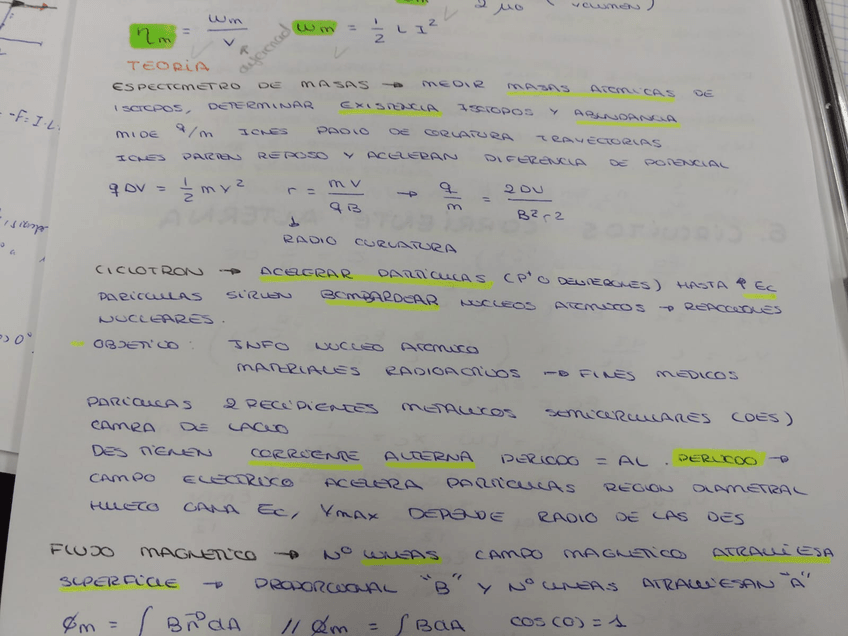 2 μ0 (VOLUMEN)
ηm = Wm / V   Wm = 1/2 L I²
TEORÍA
ESPECTOMETRO DE MASAS → MEDIR MASAS ATOMICAS DE
ISOTOPOS, DETERMINAR EXISTENCIA ISOTOPOS Y ABUNDANCIA
MIDE q/m IONES RADIO DE CURVATURA TRAYECTORIAS
IONES PARTEN REPOSO Y ACELERAN DIFERENCIA DE POTENCIAL
q DV = 1/2 m v²   r = mV / qB → q/m = 2DV / B²r2
↓
RADIO CURVATURA
CICLOTRON → ACELERAR PARTÍCULAS (P⁺ O DEUTERONES) HASTA ↑ Ec
PARICULAS SIRVEN BOMBARDEAR NUCLEOS ATOMICOS → REACCIONES
NUCLEARES.
- OBJETIVO: INFO NUCLEO ATOMICO
MATERIALES RADIOACTIVOS → FINES MEDICOS
PARICULAS 2 RECIPIENTES METALICOS SEMICIRCULARES (DES)
CAMRA DE VACIO
DES TIENEN CORRIENTE ALTERNA PERIODO = AL. PERIODO →
CAMPO ELECTRICO ACELERA PARTICULAS REGION DIAMETRAL
HUECO GANA Ec, Vmax DEPENDE RADIO DE LAS DES
FLUJO MAGNETICO → Nº LINEAS CAMPO MAGNETICO ATRAVIESA
SUPERFICIE → PROPORCIONAL "B" Y Nº LINEAS ATRAVIESAN "A"
Φm = ∫ B n⃗ dA // Φm = ∫ BdA   COS(0) = 1